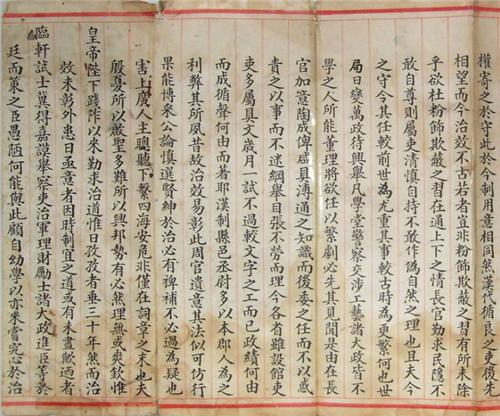 權寄之於守此於今制用意相同然漢代循良之吏後先
相望而今治效不古若者豈非粉飾欺蔽之習有所未除
乎欲杜粉飾欺蔽之習在通上下之情長官勤求民隱不
敢自尊則屬吏清慎自持不敢作為自然之理也且夫今
之守令其任較前世為尤重其事較古時為更繁何也世
局日變萬政待興舉凡學堂警察交涉工藝諸大政皆不
學之人所能董理將欲任以繁劇必先其見聞是由在長
官加意陶成俾咸具溥通之知識而後委之任而不以惑
責之以事而不迷綱舉目張不勞而理今各省雖設館課
吏多屬具文歲月一試不過較文字之工而已政績何由
而成循聲何由而著耶漢制縣邑丞尉多以本郡人為之
利弊其所夙昔故治效易彰此周官遺意其法似可仿行
果能博采公論慎選賢紳於治必有裨補不必過為疑也
害上廣人主聰聽下繫四海安危非僅在詞章之末也夫
殷憂所以啟聖多難所以興邦勢有必然理無或爽欽惟
皇帝陛下踐阼以來勤求治道惟日孜孜者垂三十年然而治
效未彰外患日亟意者因時制宜之道或有未盡歟過者
臨軒試士冀得嘉謨舉察吏治軍理財勵士諸大政進臣等於
廷而策之臣愚陋何能與此顧自幼學以亦來嘗究心於治